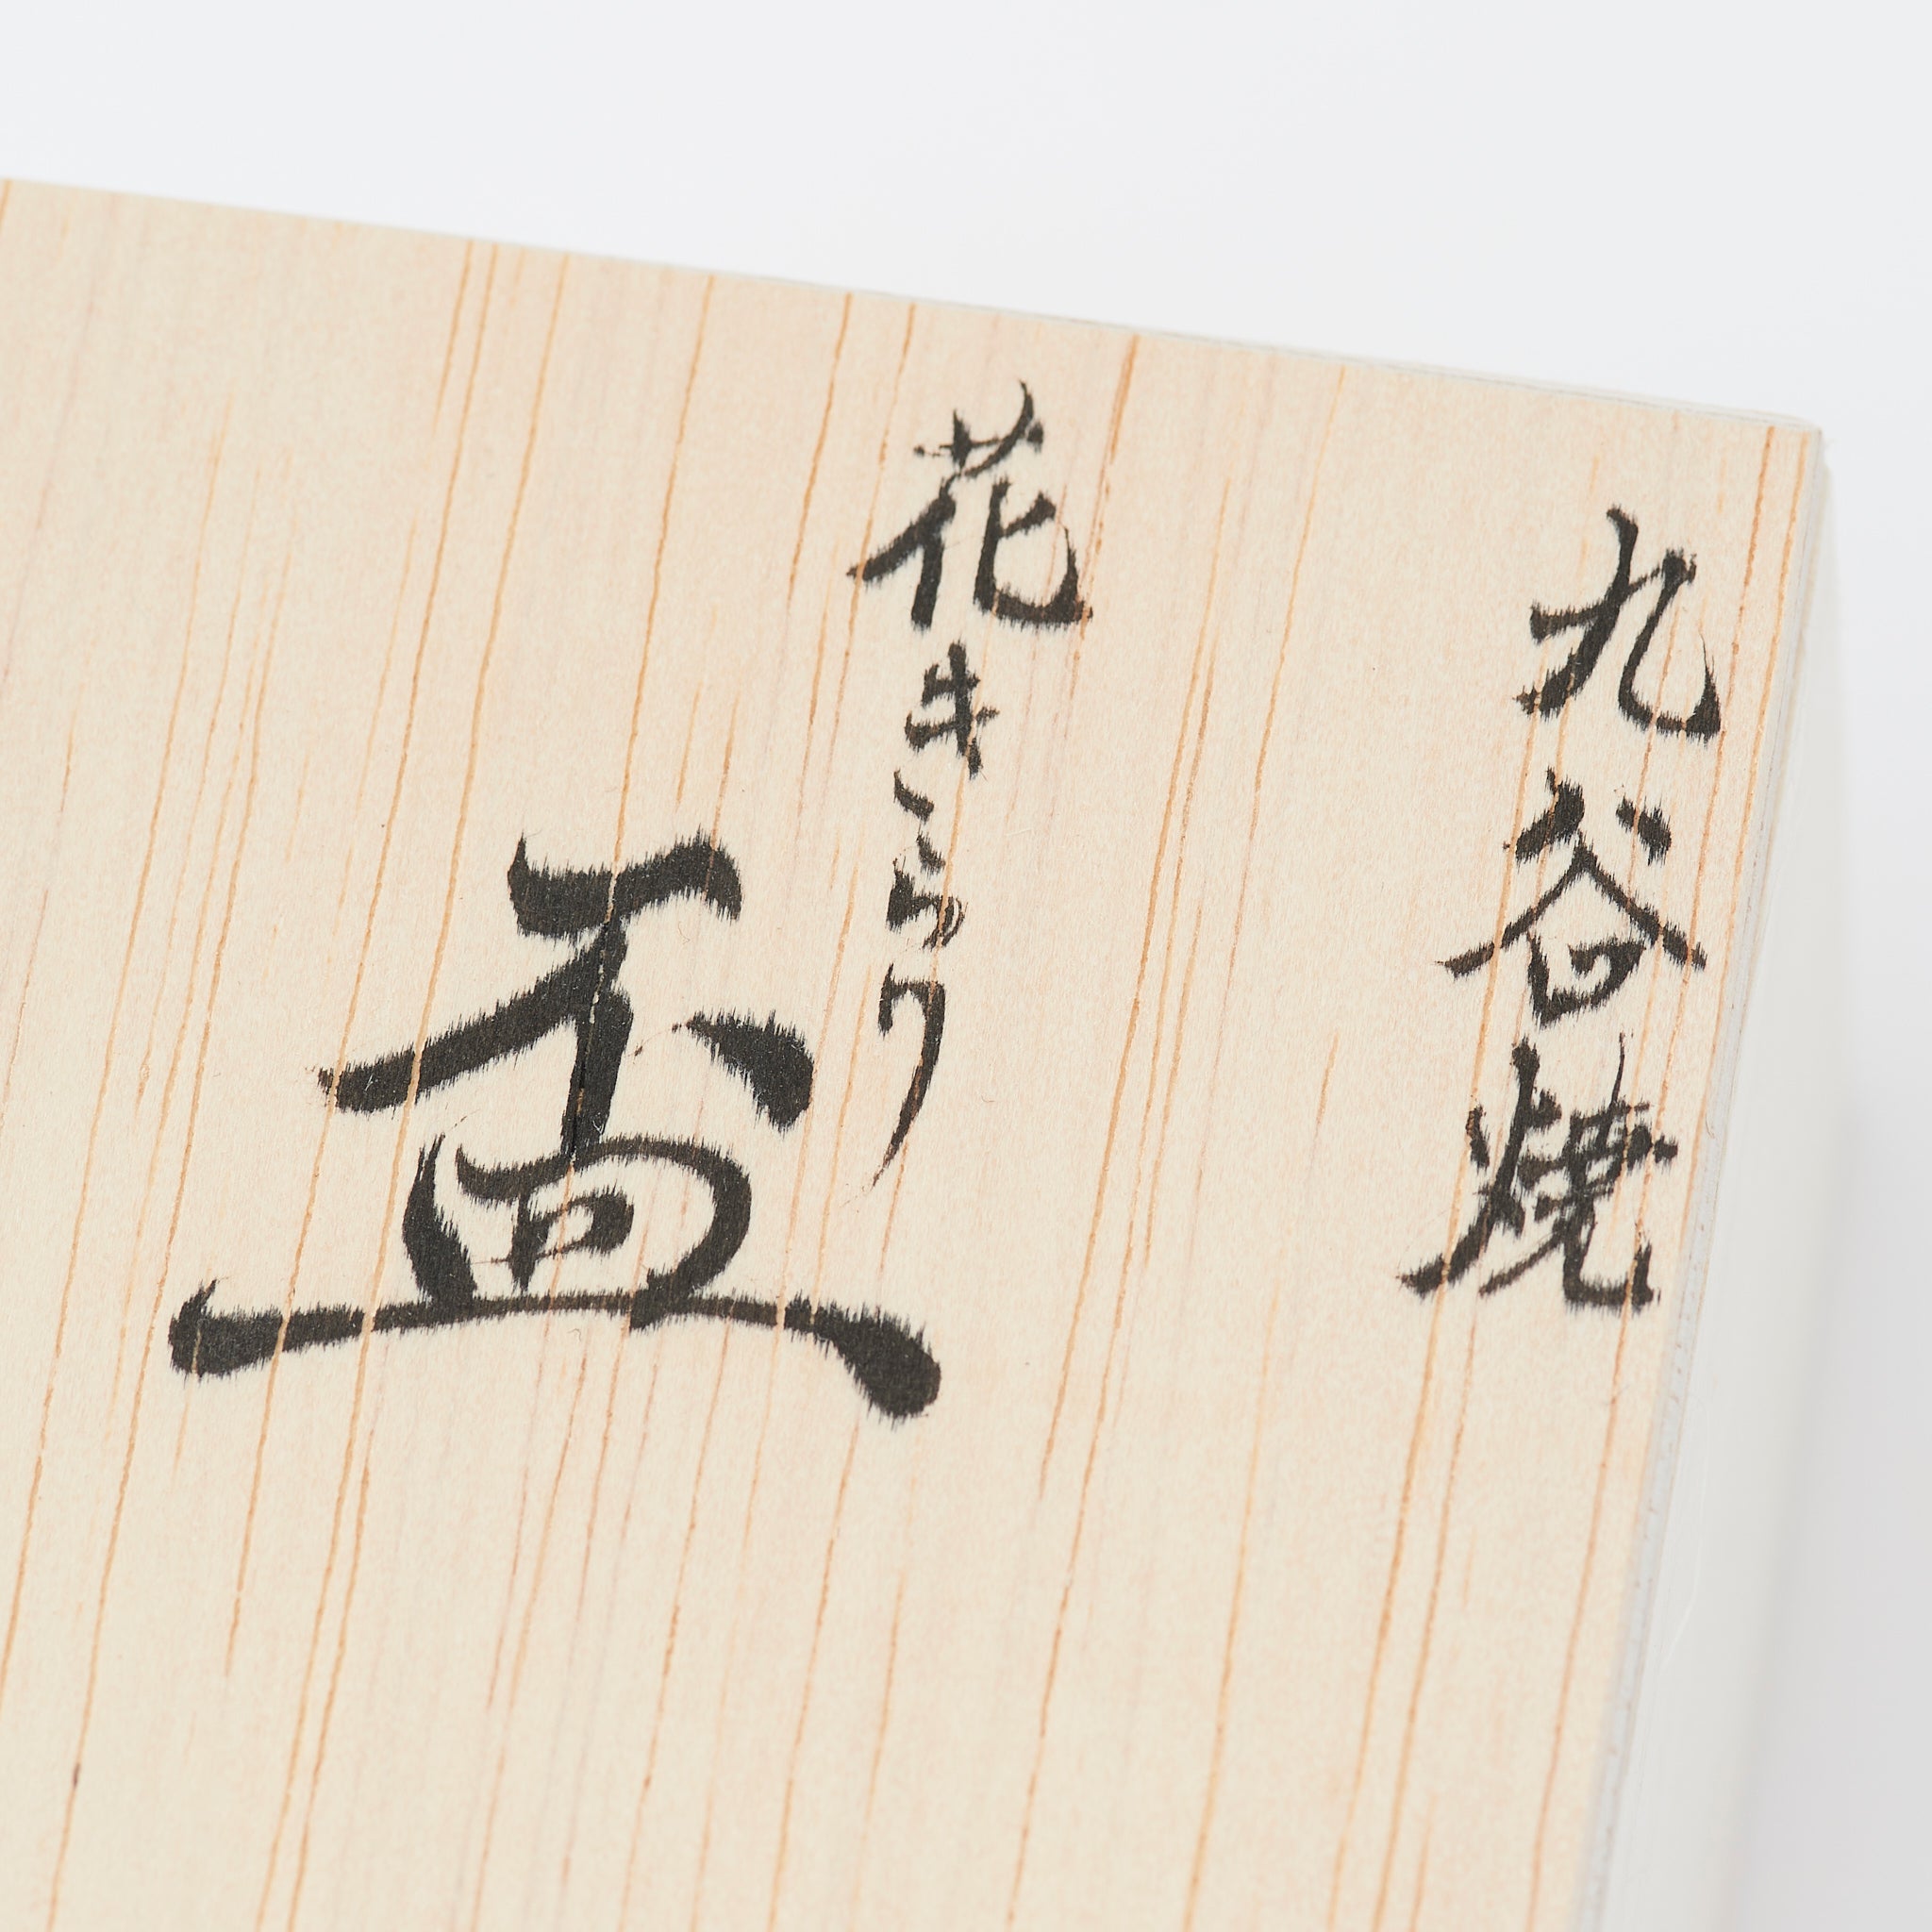 九谷焼
花きらり
盃